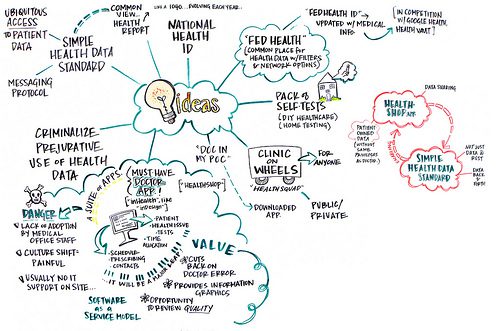 UBIQUITOUS
ACCESS
TO PATIENT
DATA
COMMON
VIEW...
HEALTH
REPORT
LIKE A LOGO... EVOLVING EACH YEAR...
NATIONAL
HEALTH
ID
SIMPLE
HEALTH DATA
STANDARD
MESSAGING
PROTOCOL
"FED HEALTH"
(COMMON PLACE for
HEALTH DATA w/FILTERS
& NETWORK OPTIONS)
"FED HEALTH ID"
UPDATED w/ MEDICAL
INFO
IN COMPETITION
w/ GOOGLE HEALTH,
HEALTH VAULT
ideas
PACK of
SELF-TESTS
(DIY HEALTHCARE)
(HOME TESTING)
CRIMINALIZE
PREJURATIVE
USE OF HEALTH
DATA
"DOC IN
MY POC"
CLINIC
ON
WHEELS
"HEALTH SQUAD"
FOR
ANYONE
PUBLIC/
PRIVATE
DOWNLOADED APP.
DATA SHARING
HEALTH-
SHOP
PATIENT
OWNED
DATA
(WITHOUT
SAME
PRIVILEGES
AS DOCTOR)
SIMPLE
HEALTH DATA
STANDARD
NOT JUST
DATA @
REST
DATA
BACK &
FORTH
A SUITE of APPS.
MUST HAVE
DOCTOR
APP!
"inHealth", like
"inDesign"
"HEALTHSHOP"
DANGER
LACK of ADOPTION
BY MEDICAL
OFFICE STAFF
CULTURE SHIFT-
PAINFUL
USUALLY NO IT
SUPPORT ON SITE...
-PATIENT
-HEALTH ISSUE
-TESTS
-TIME
-SCHEDULE
-PRESCRIBING
-CONTACTS
IT WILL BE A MAJOR
SOFTWARE
AS A
SERVICE MODEL
VALUE
CUTS
BACK ON
DOCTOR ERROR
PROVIDES INFORMATION
GRAPHICS
OPPORTUNITY
TO REVIEW QUALITY